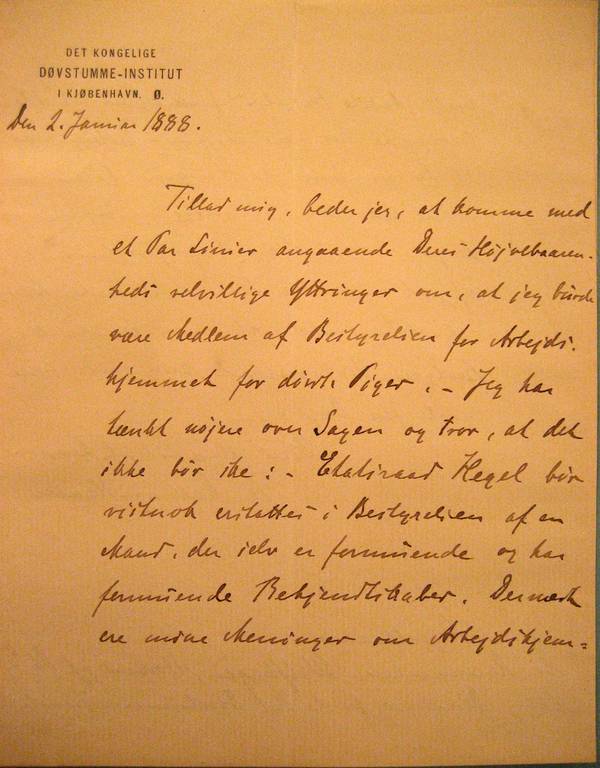 DET KONGELIGE
DØVSTUMME-INSTITUT
I KJØBENHAVN. Ø.
Den 2. Januar 1888.
Tillad mig, beder jeg, at komme med
et Par Linier angaaende Deres Højvelbaaren-
heds velvillige Yttringer om, at jeg burde
være Medlem af Bestyrelsen for Arbejds-
hjemmet for døvst. Piger. – Jeg har
tænkt nøjere over Sagen og tror, at det
ikke bør ske: – Etatsraad Hegel bør
vistnok erstattes i Bestyrelsen af en
Mand, der selv er formuende og har
formuende Bekjendtskaber. Dernæst
ere mine Meninger om Arbejdshjem=